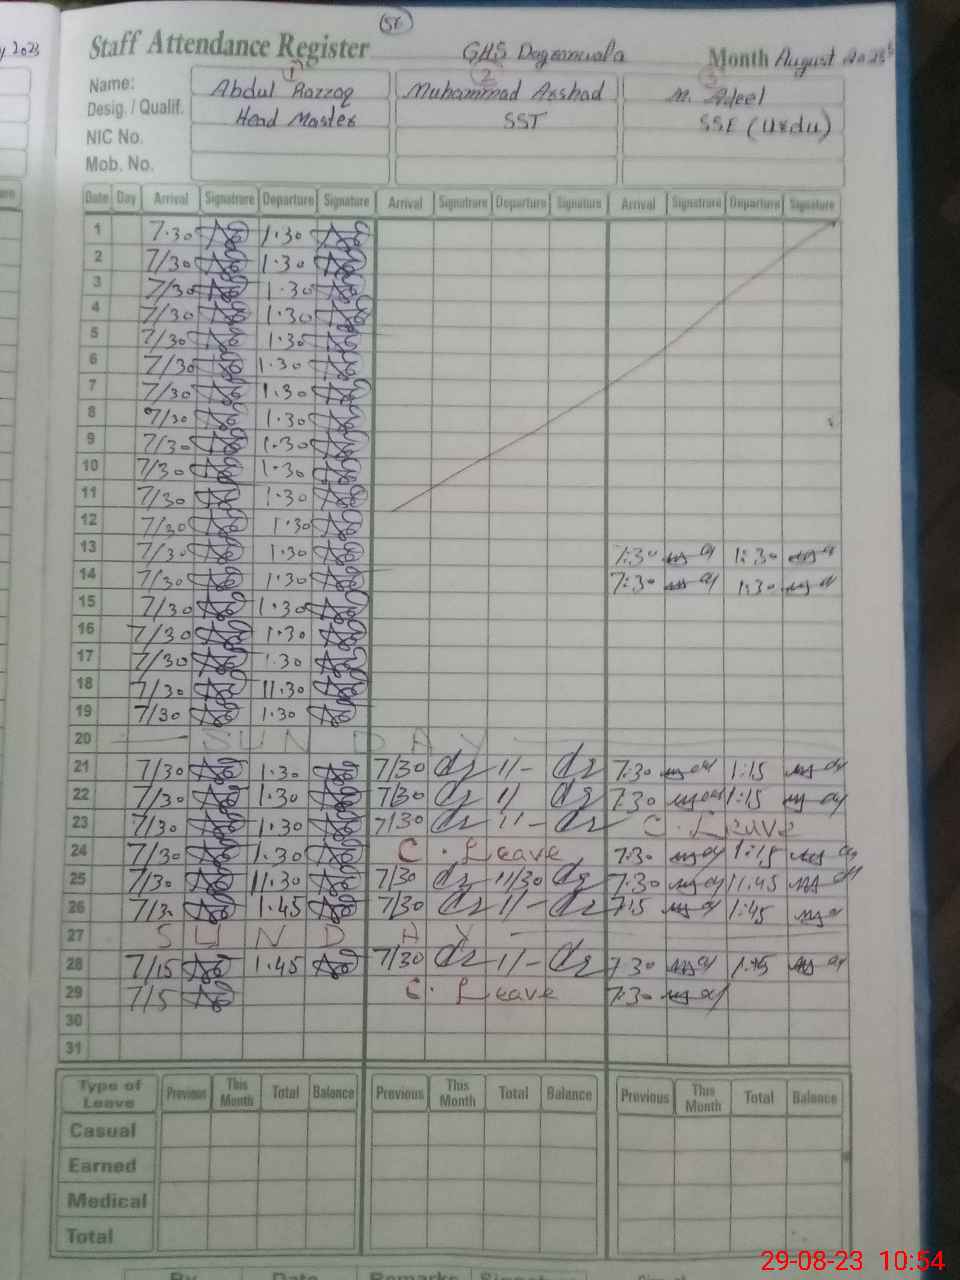 y 2023
56
Staff Attendance Register GHS Dogranwala Month August 2023
1 2 3
Name: Abdul Razzaq Muhammad Arshad M. Adeel
Desig. / Qualif. Head Master SST SSE (Urdu)
NIC No.
Mob. No.
Date Day Arrival Signatrure Departure Signature Arrival Signatrure Departure Signature Arrival Signatrure Departure Signature
1 7.30 1.30
2 7/30 1.30
3 7/30 1.30
4 7/30 1.30
5 7/30 1.30
6 7/30 1.30
7 7/30 1.30
8 7/30 1.30
9 7/30 1.30
10 7/30 1.30
11 7/30 1.30
12 7/30 1.30
13 7/30 1.30 7:30 1:30
14 7/30 1.30 7:30 1:30
15 7/30 1.30
16 7/30 1.30
17 7/30 1.30
18 7/30 11.30
19 7/30 1.30
20 SUNDAY
21 7/30 1.30 7/30 11- 7:30 1:15
22 7/30 1.30 7/30 11 7:30 1:15
23 7/30 1.30 7/30 11- C. Leave
24 7/30 1.30 C. Leave 7:30 1:15
25 7/30 11.30 7/30 11/30 7:30 11.45
26 7/30 1.45 7/30 11- 7:15 1:45
27 SUNDAY
28 7/15 1.45 7/30 11- 7:30
29 7/5 C. Leave 7:30
30
31
Type of Leave Previous This Month Total Balance Previous This Month Total Balance Previous This Month Total Balance
Casual
Earned
Medical
Total
By Date Remarks Signature
29-08-23 10:54